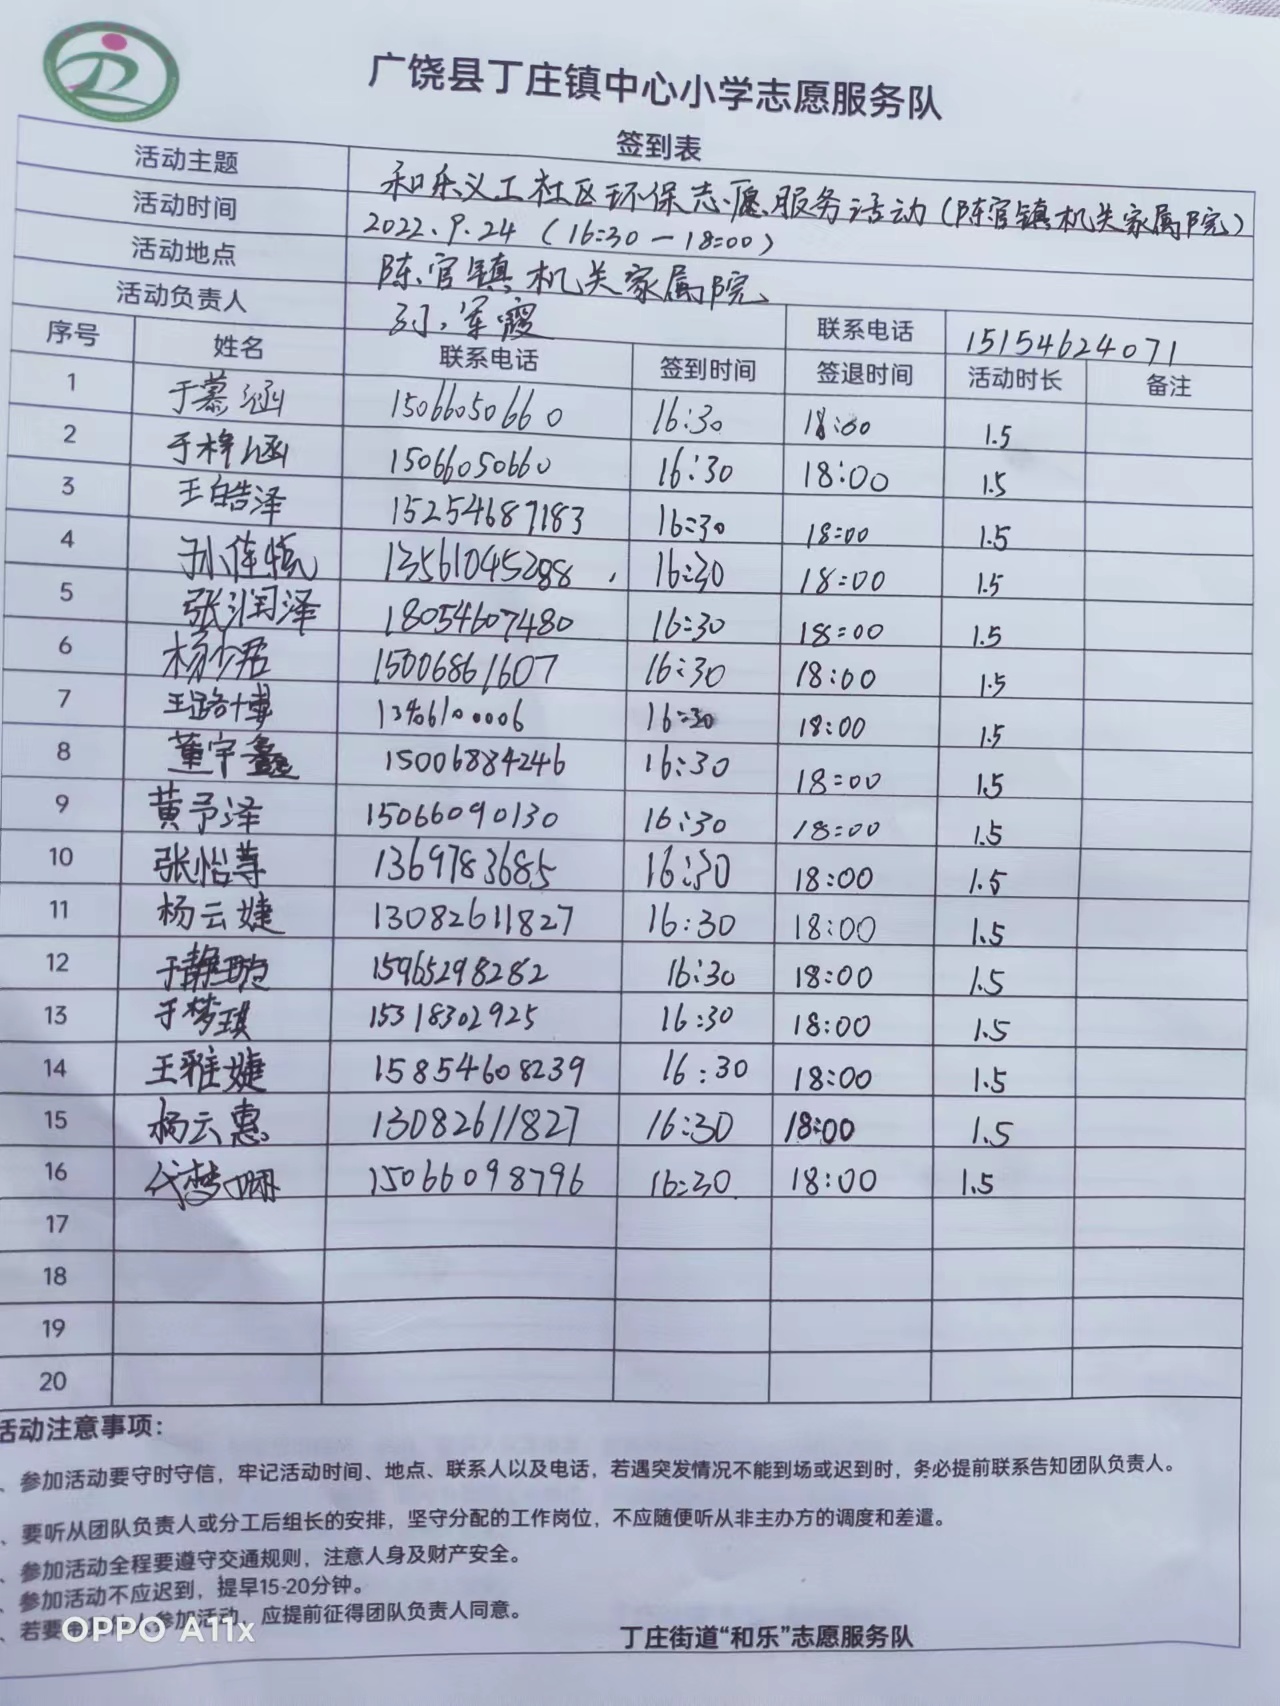 广饶县丁庄镇中心小学志愿服务队
签到表
活动主题 和乐义工社区环保志愿服务活动(陈官镇机关家属院)
活动时间 2022.9.24 (16:30-18:00)
活动地点 陈官镇机关家属院
活动负责人 军霞 联系电话 15154624071
序号 姓名 联系电话 签到时间 签退时间 活动时长 备注
1 于慕涵 15066050660 16:30 18:00 1.5
2 于梓涵 15066050660 16:30 18:00 1.5
3 王皓泽 15254687183 16:30 18:00 1.5
4 孙佳 13561045288 16:30 18:00 1.5
5 张润泽 18054607480 16:30 18:00 1.5
6 杨少君 15006861607 16:30 18:00 1.5
7 王璐博 16:30 18:00 1.5
8 董宇鑫 15006884246 16:30 18:00 1.5
9 黄予泽 15066090130 16:30 18:00 1.5
10 张怡 1369783685 16:30 18:00 1.5
11 杨云婕 13082611827 16:30 18:00 1.5
12 于静 15965298282 16:30 18:00 1.5
13 于梦琪 15318302925 16:30 18:00 1.5
14 王雅婕 15854608239 16:30 18:00 1.5
15 杨云惠 13082611827 16:30 18:00 1.5
16 代梦 15066098796 16:30 18:00 1.5
17
18
19
20
活动注意事项：
、参加活动要守时守信，牢记活动时间、地点、联系人以及电话，若遇突发情况不能到场或迟到时，务必提前联系告知团队负责人。
、要听从团队负责人或分工后组长的安排，坚守分配的工作岗位，不应随便听从非主办方的调度和差遣。
、参加活动全程要遵守交通规则，注意人身及财产安全。
、参加活动不应迟到，提早15-20分钟。
、若要带 人参加活动，应提前征得团队负责人同意。
OPPO A11x
丁庄街道“和乐”志愿服务队